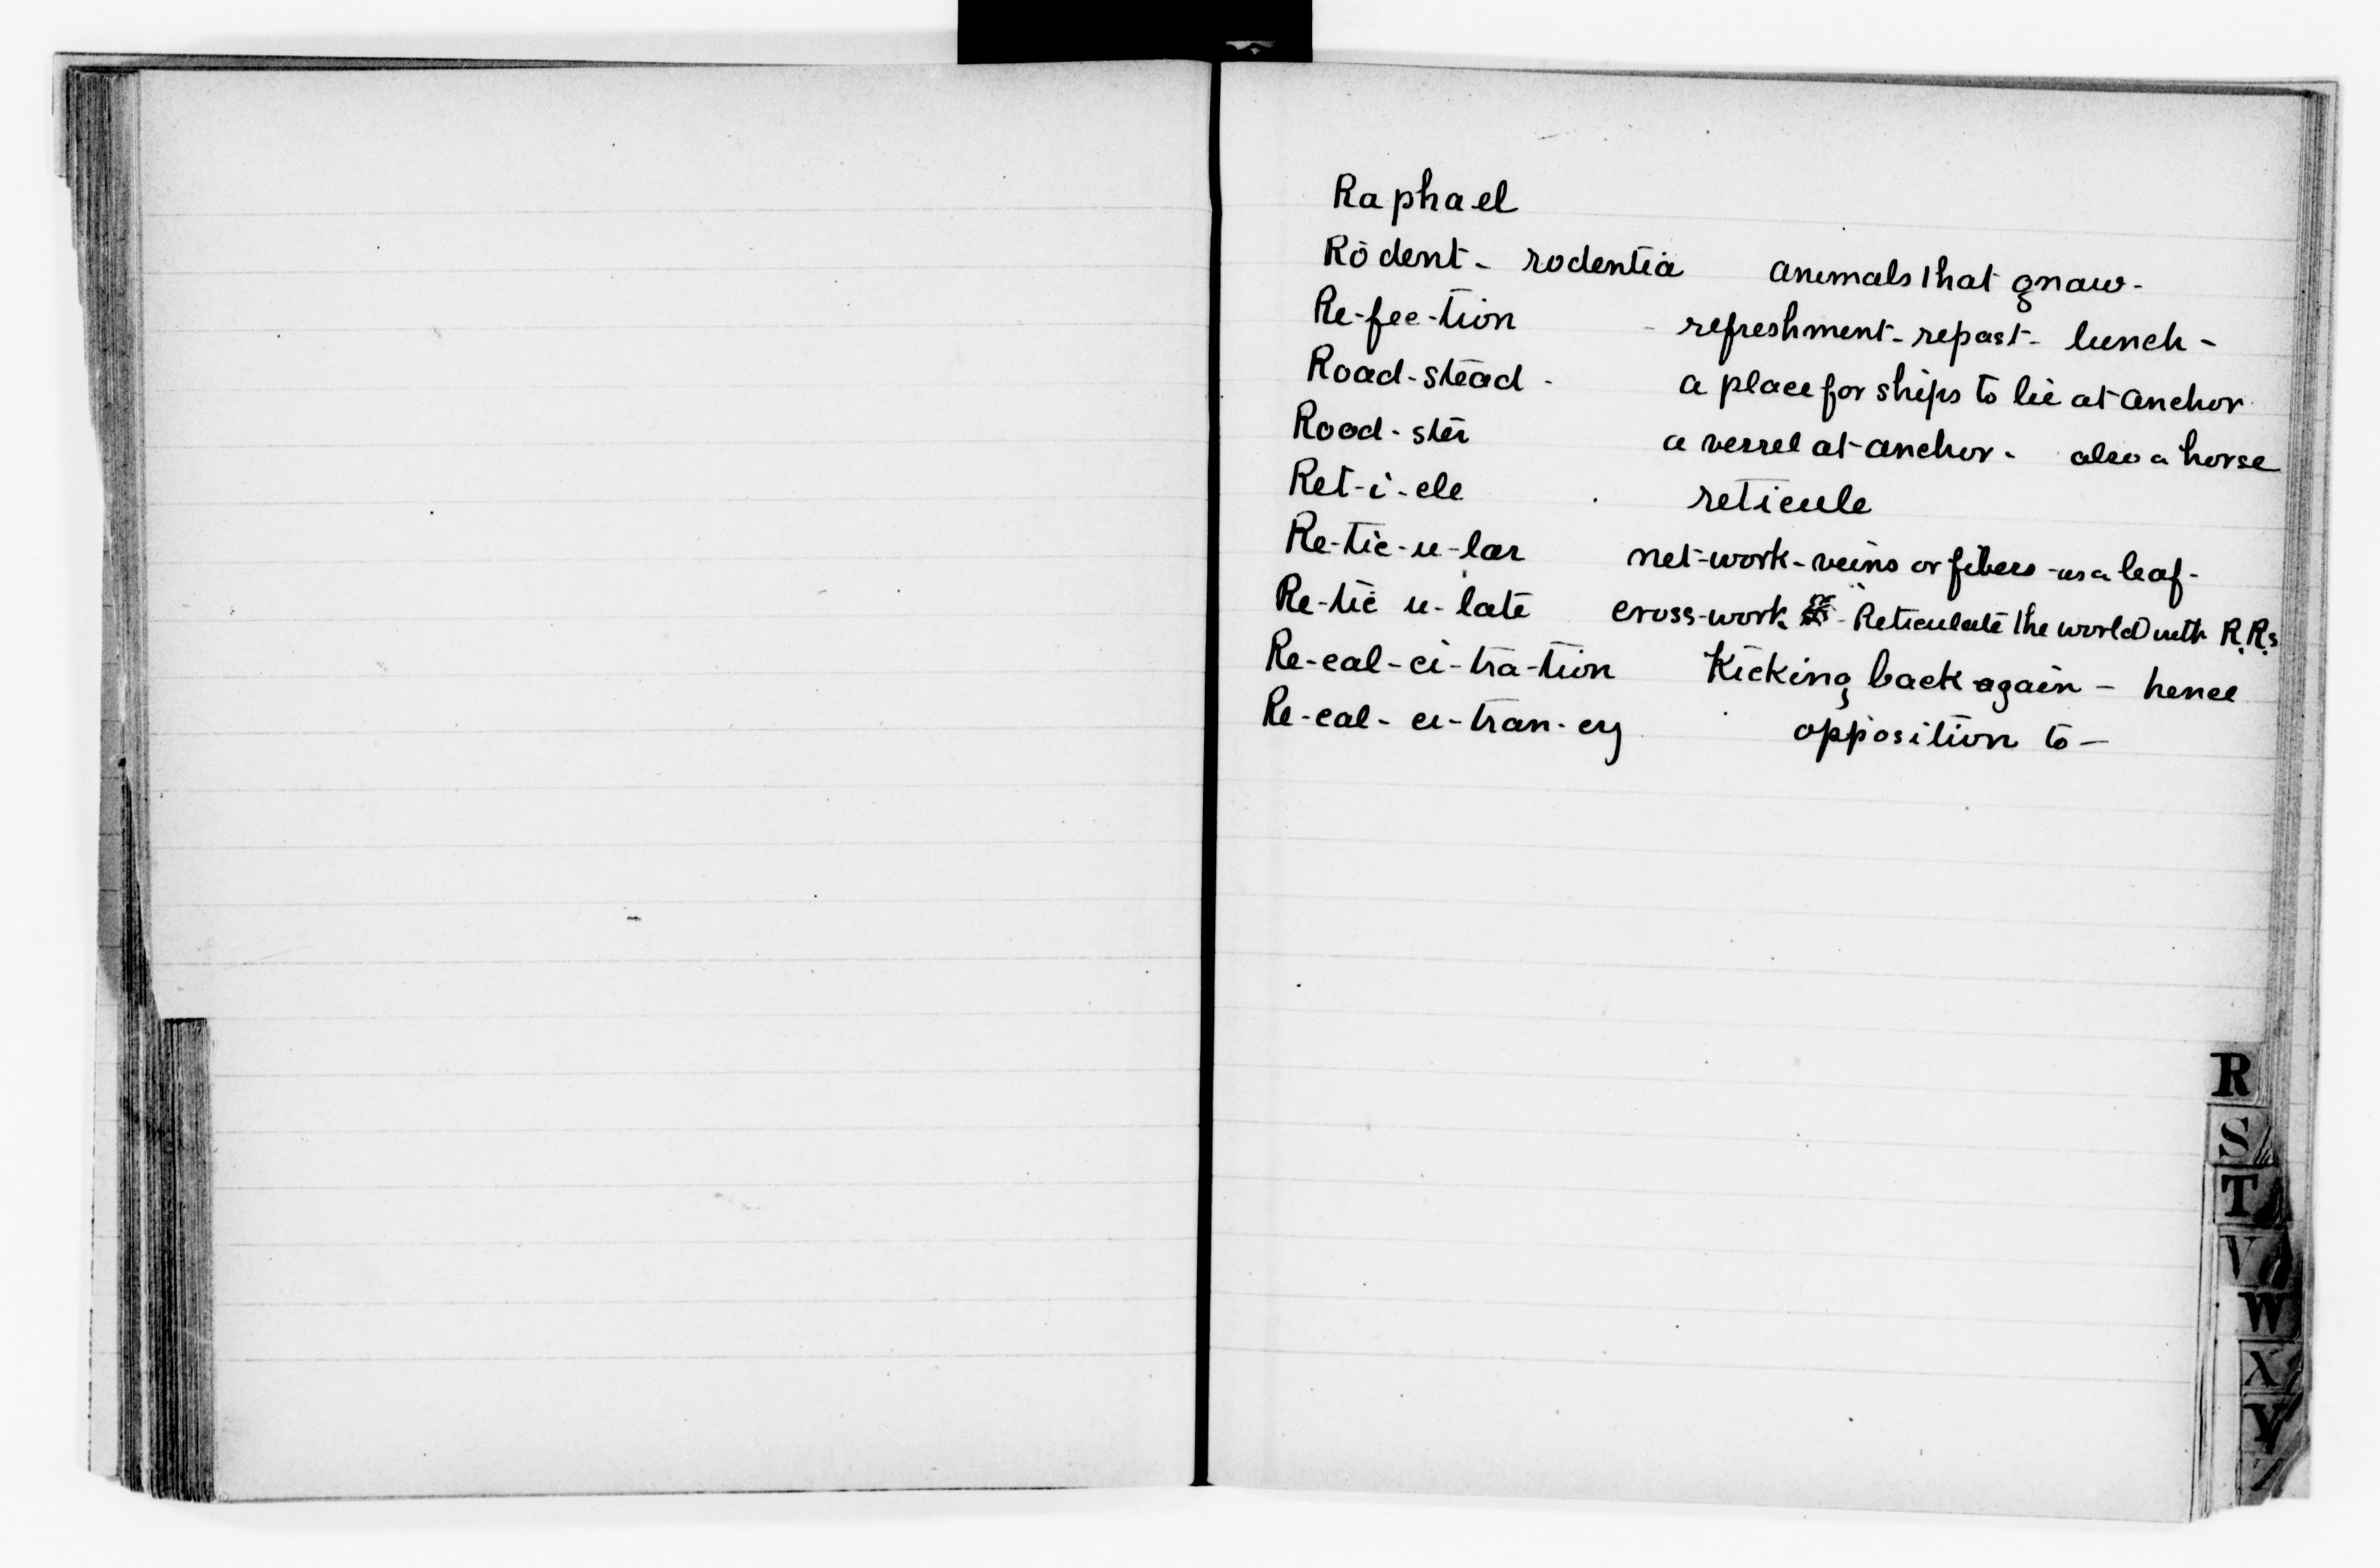 Raphael
Rodent - rodentia animals that gnaw -
Re-fec-tion - refreshment - repast - lunch -
Road-stead - a place for ships to lie at anchor.
Road-ster a vessel at anchor - also a horse
Ret-i-cle reticule
Re-tic-u-lar net-work - veins or fibers - as a leaf -
Re-tic u-late cross-work - Reticulate the world with R.R.s
Re-cal-ci-tra-tion Kicking back again - hence
Re-cal-ci-tran-cy opposition to -
R
S
T
V
W
X
Y